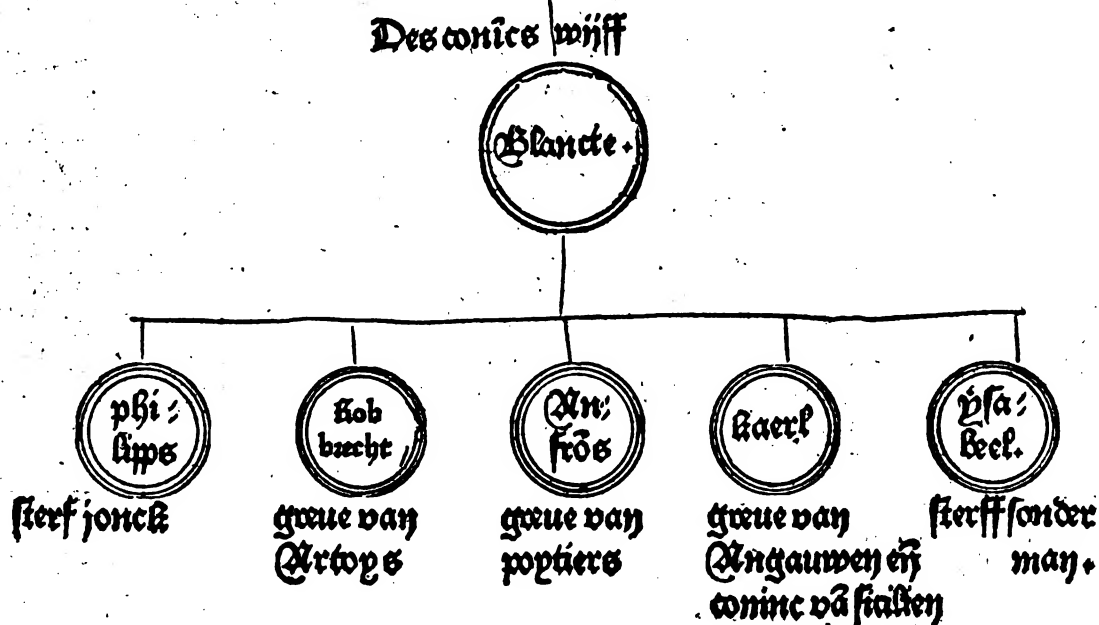 Des conīcs wijff
Blancte.
phi⸗
lipps
Rob
brecht
An⸗
frōs
Kaerl
ysa⸗
beel.
sterf jonck
greue van
Artoys
greue van
poytiers
greue van
Angauwen eñ
coninc vā sicilien
sterff sonder
man.